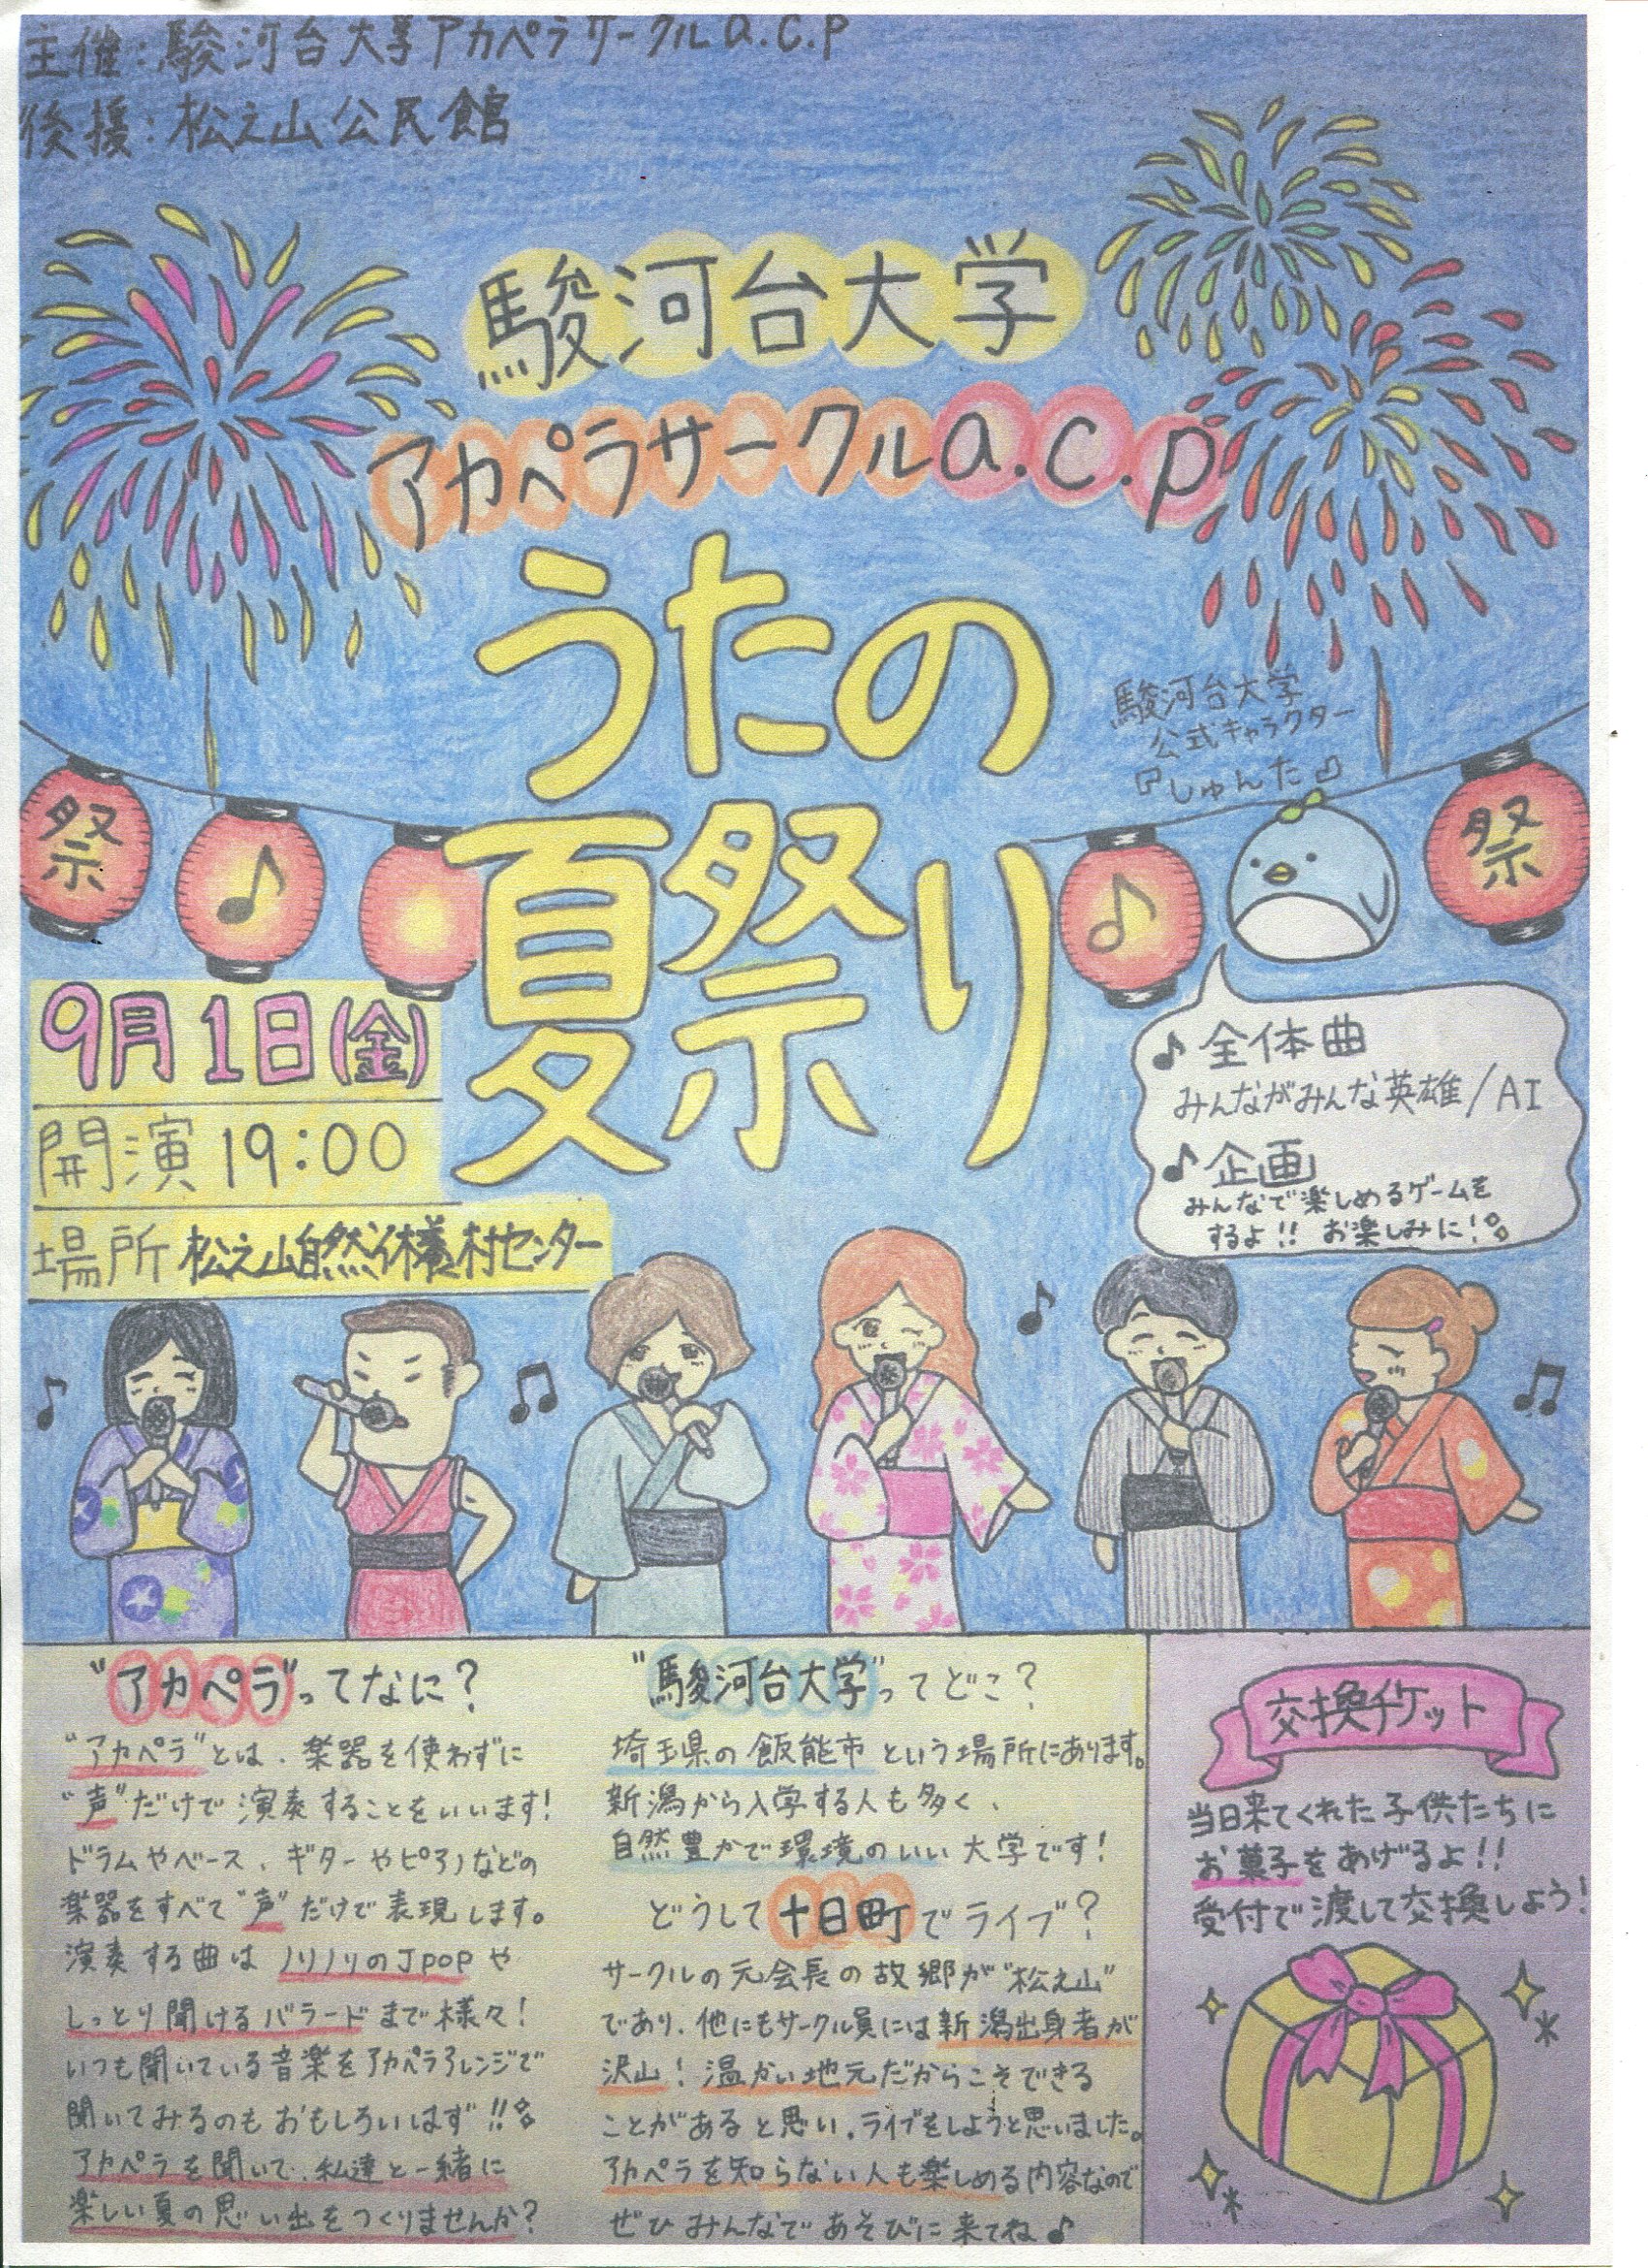 主催:駿河台大学アカペラサークルa.c.p
後援:松之山公民館
駿河台大学
アカペラサークルa.c.p
うたの
夏祭り
駿河台大学
公式キャラクター
『しゅんた』
祭
祭
9月1日(金)
開演 19:00
場所 松之山自然休養村センター
♪全体曲
みんながみんな英雄/AI
♪企画
みんなで楽しめるゲームを
するよ!! お楽しみに!
"アカペラ"ってなに?
"アカペラ"とは、楽器を使わずに
"声"だけで演奏することをいいます!
ドラムやベース、ギターやピアノなどの
楽器をすべて"声"だけで表現します。
演奏する曲はノリノリのJpopや
しっとり聞けるバラードまで様々!
いつも聞いている音楽をアカペラアレンジで
聞いてみるのもおもしろいはず!!
アカペラを聞いて、私達と一緒に
楽しい夏の思い出をつくりませんか?
"駿河台大学"ってどこ?
埼玉県の飯能市という場所にあります。
新潟から入学する人も多く、
自然豊かで環境のいい大学です!
どうして十日町でライブ?
サークルの元会長の故郷が"松之山"
であり、他にもサークル員には新潟出身者が
沢山!温かい地元だからこそできる
ことがあると思い、ライブをしようと思いました。
アカペラを知らない人も楽しめる内容なので
ぜひみんなであそびに来てね♪
交換チケット
当日来てくれた子供たちに
お菓子をあげるよ!!
受付で渡して交換しよう!